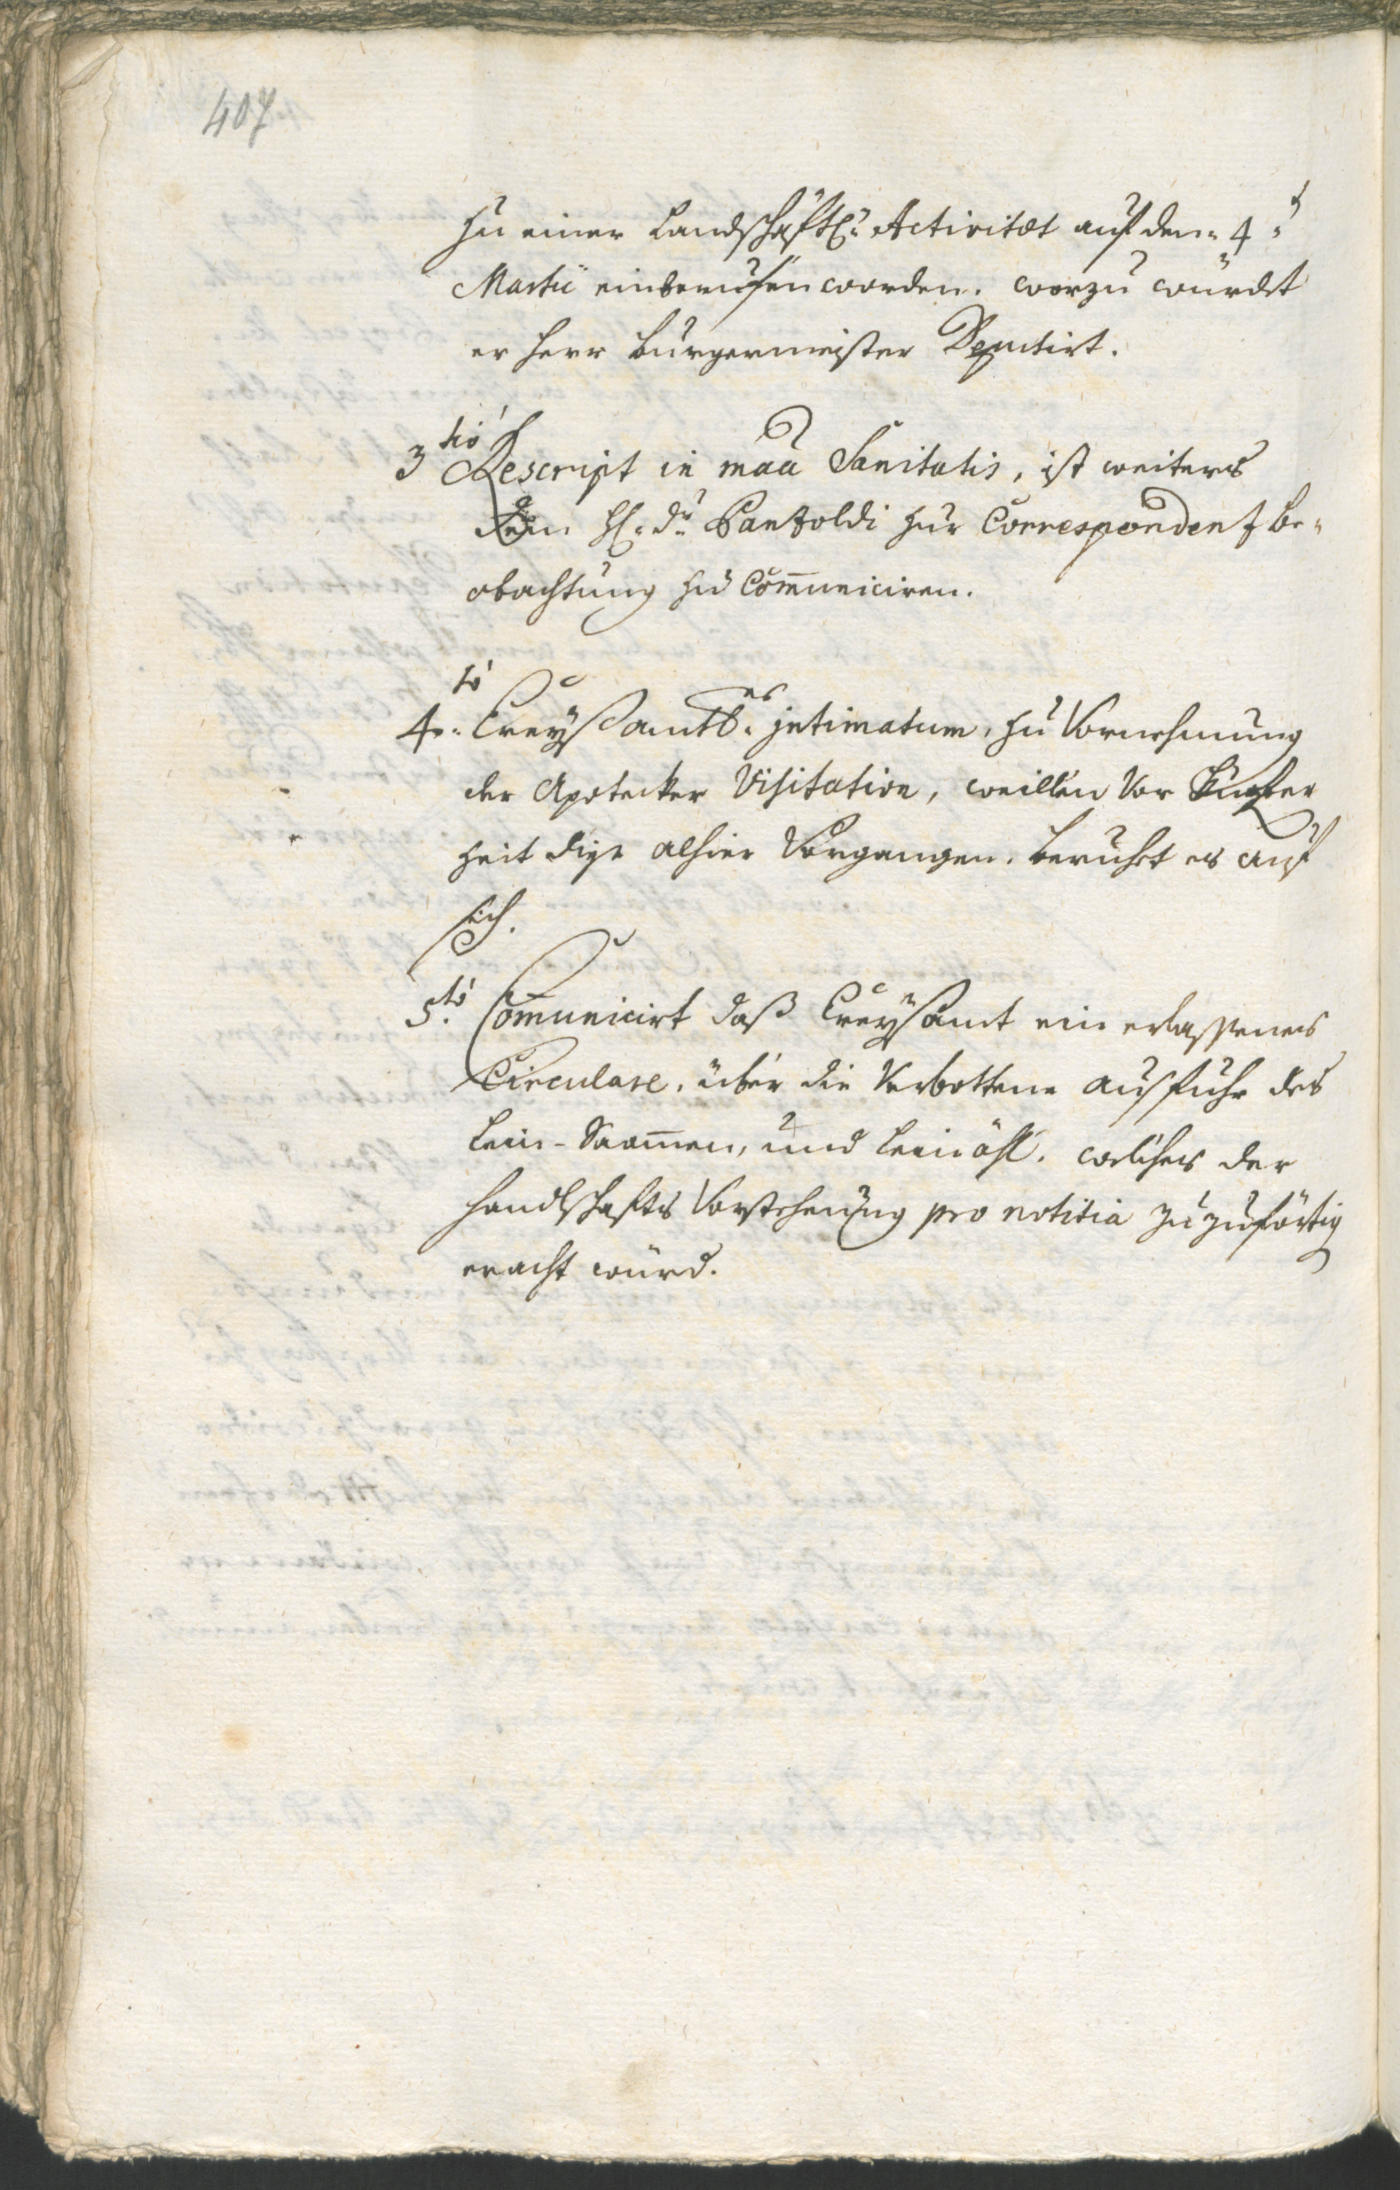 407
zu einer Landschäftl: Activitæt auf den 4t
Martii einberufen worden. worzu würdet
er Herr Burgermeister Deputirt.
3tio Rescript in maã Sanitatis, ist weiters
dem H: Dr Panzoldi zur Correspondenz be-
obachtung zu Com̄uniciren.
4to Creÿsambts jntimatum, zu Vornehmung
der Apotecker Visitation, weillen vor Kurzer
Zeit dise alhier Vorgangen. beruhet es auf
sich.
5to Com̄unicirt das Creÿsamt ein erlassenes
Circulare, über die Verbottene ausfuhr des
Lein-Saam̄en, und Leinöhl. welches der
Handlschafts Vorstehung pro notitia zuzuförtig
eracht würd.